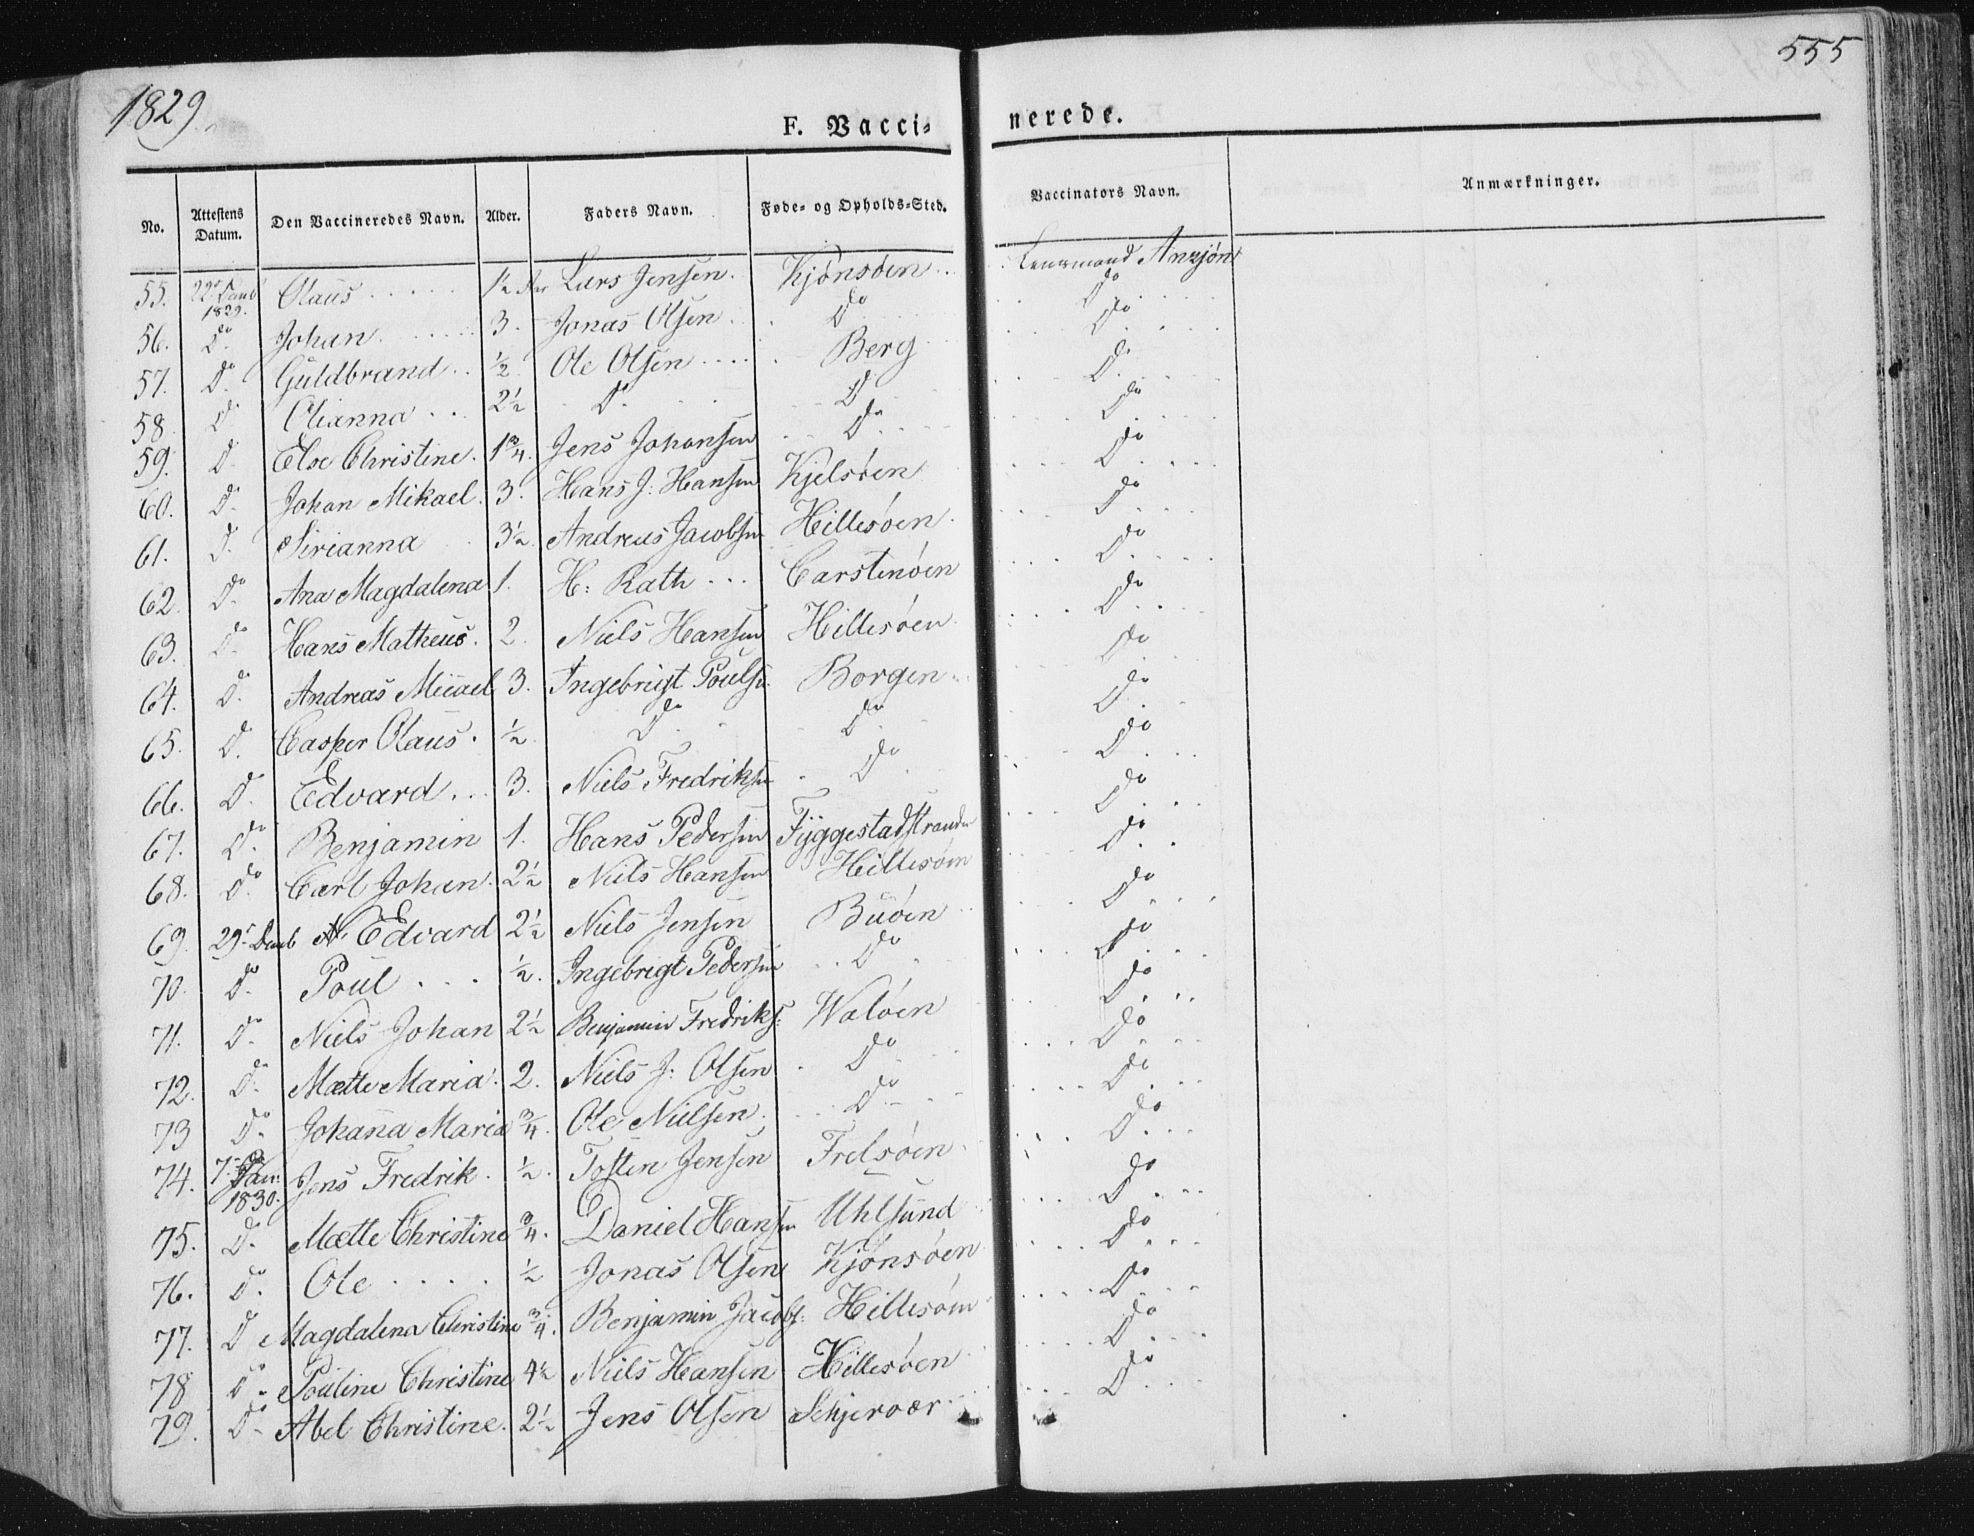 1829
555
F. Vacci= nerede.
No. Attestens Datum. Den Vaccineredes Navn. Alder. Faders Navn. Føde- og Opholds-Sted. Vaccinators Navn. Anmærkninger.
55. 22de Decmb 1829. Olaus 1½ Aar Lars Jensen. Kjönsöen Lensmand
56. Do Johan 3. Jonas Olsen Do Do
57. Do Guldbrand ½ Ole Olsen Berg Do
58. Do Olianna 2½ Do Do Do
59. Do Else Christine. 1¾. Jens Johansen Do Do
60. Do Johan Mikael. 3. Hans J: Hansen Kjelsöen Do
61. Do Sirianna 3½ Andreas Jacobsen Hillesöen Do
62. Do Ana Magdalena 1. H: Rath Carstenöen Do
63. Do Hans Matheus. 2. Niels Hansen Hillesöen Do
64. Do Andreas Micael 3. Ingebrigt Poulsn Borgen Do
65. Do Casper Olaus. ½ Do Do Do
66. Do Edvard 3. Niels Fredriksn Do Do
67. Do Benjamin 1. Hans Pedersen Do
68. Do Carl Johan. 2½ Niels Hansen Hillesöen Do
69. 29de Decmb N. Edvard 2½ Niels Jensen Buöen Do
70. Do Poul ½. Ingebrigt Pedersen Do Do
71. Do Niels Johan 2½ Benjamin Fredriks: Waløen Do
72. Do Mætte Maria. 2. Niels J: Olsen Do Do
73 Do Johanna Maria ¾. Ole Nielsen Do Do
74. 7de Jan: 1830. Jens Fredrik. ½. Tosten Jensen Frelsöen Do
75. Do Mætte Christine ¾. Daniel Hansen Uhlsund Do
76. Do Ole ½ Jonas Olsen Kjönsöen Do
77. Do Magdalena Christine ¾. Benjamin Jacobs: Hillesöen Do
78 Do Pouline Christine 4½ Niels Hansen Hillesöen Do
79. Do Abel Christine. 2½ Jens Olsen Schjervær Do